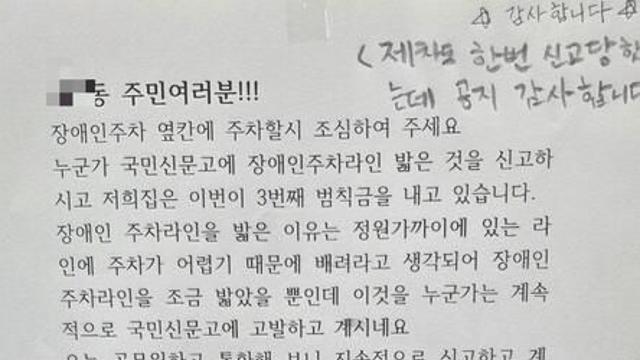 감사합니다
<제차도 한번 신고당했
는데 공지 감사합니다
동 주민여러분!!!
장애인주차 옆칸에 주차할시 조심하여 주세요
누군가 국민신문고에 장애인주차라인 밟은 것을 신고하
시고 저희집은 이번이 3번째 범칙금을 내고 있습니다.
장애인 주차라인을 밟은 이유는 정원가까이에 있는 라
인에 주차가 어렵기 때문에 배려라고 생각되어 장애인
주차라인을 조금 밟았을 뿐인데 이것을 누군가는 계속
적으로 국민신문고에 고발하고 계시네요
오늘 공무원하고 통화해 보니 지속적으로 신고하고 계